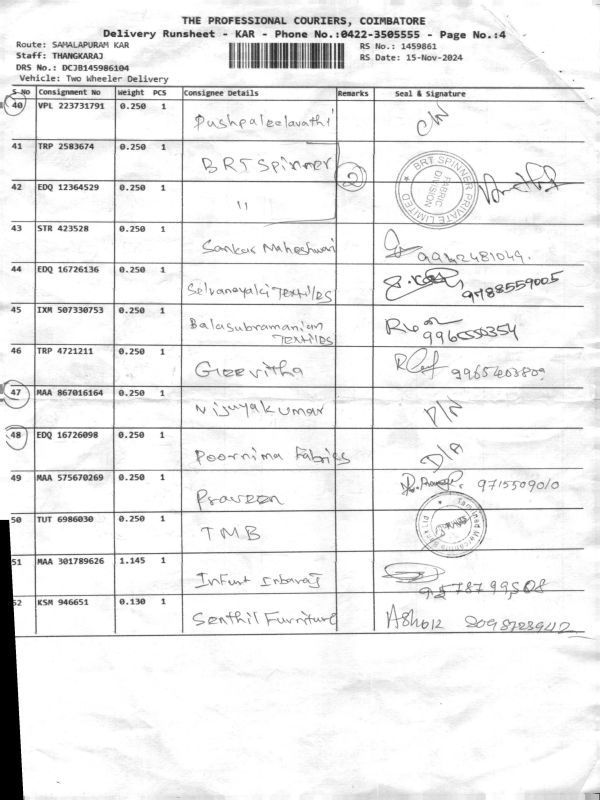 THE PROFESSIONAL COURIERS, COIMBATORE
Delivery Runsheet - KAR - Phone No.:0422-3505555 - Page No.:4
Route: SAMALAPURAM KAR
Staff: THANGKARAJ
DRS No.: DCJB145986104
Vehicle: Two Wheeler Delivery
RS No.: 1459861
RS Date: 15-Nov-2024
S No Consignment No Weight PCS Consignee Details Remarks Seal & Signature
40 VPL 223731791 0.250 1 Pushpaleelavathi
41 TRP 2583674 0.250 1 BRT Spinner 2 BRT SPINNER PRIVATE LIMITED FABRIC DIVISION
42 EDQ 12364529 0.250 1 "
43 STR 423528 0.250 1 Sankar Maheshwari 9942481049.
44 EDQ 16726136 0.250 1 Selvanayaki Textiles 9788559005
45 IXM 507330753 0.250 1 Balasubramaniam Textiles 9965550354
46 TRP 4721211 0.250 1 Geevitha 9965403809
47 MAA 867016164 0.250 1 Vijayakumar D/N
48 EDQ 16726098 0.250 1 Poornima Fabrics D/A
49 MAA 575670269 0.250 1 Praveen 9715509010
50 TUT 6986030 0.250 1 TMB
51 MAA 301789626 1.145 1 Infant Inbaraj
52 KSM 946651 0.130 1 Senthil Furniture Ashok